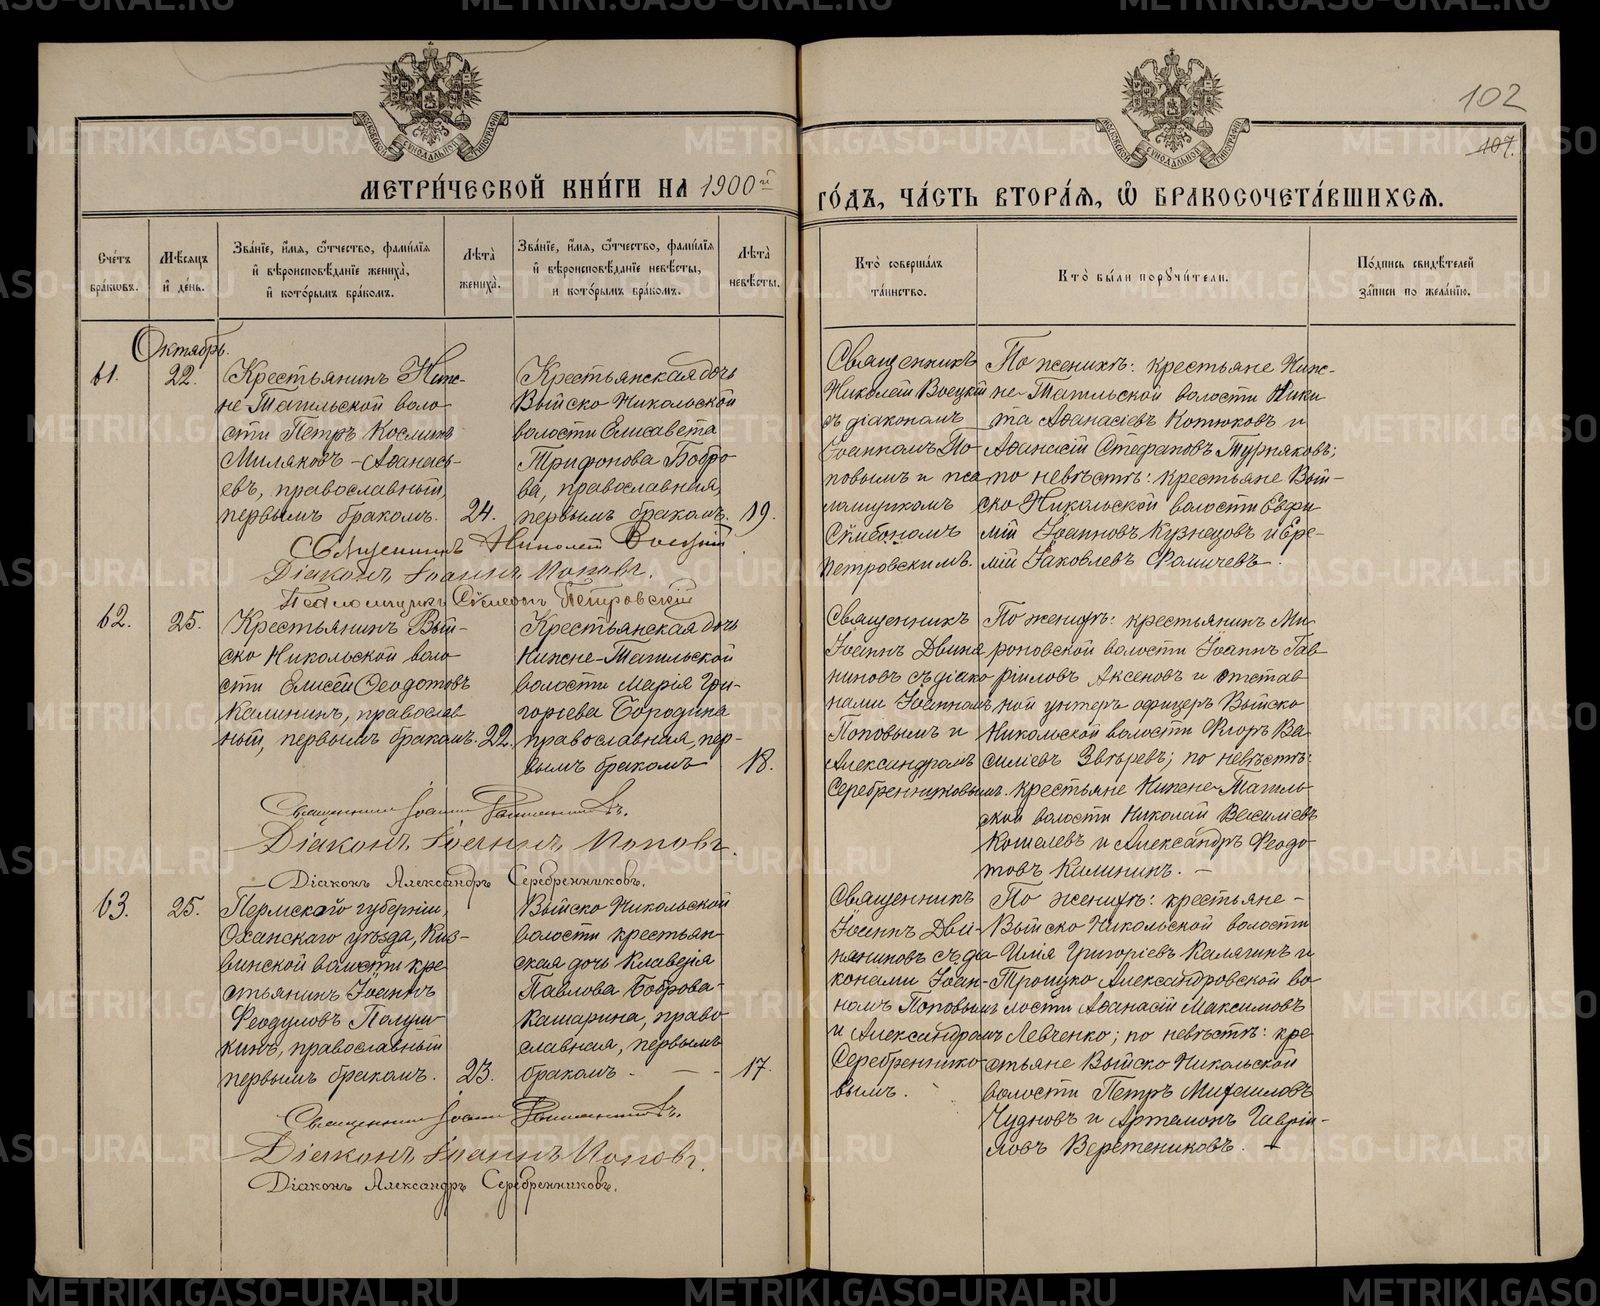 102
107.
МЕТРИ́ЧЕСКОЙ КНИ́ГИ НА 1900й
ГО́ДЪ, ЧА́СТЬ ВТОРА́Я, Ѽ БРАКОСОЧЕТА́ВШИХСЯ.
Сче́тъ бра́ковъ.
Мѣ́сяцъ и҆ де́нь.
Зва́нїе, и҆́мя, ѻ҆́тчество, фами́лїя
и҆ вѣроисповѣ́данїе жениха̀,
и҆ кото́рымъ бра́комъ.
Лѣта̀ жениха̀.
Зва́нїе, и҆́мя, ѻ҆́тчество, фами́лїя
и҆ вѣроисповѣ́данїе невѣ́сты,
и кото́рымъ бра́комъ.
Лѣта̀ невѣ́сты.
Кто̀ соверша́лъ та́инство.
Кто̀ бы́ли порꙋчи́тели.
По́дпись свидѣ́телей
за́писи по жела́нїю.
Октябрь.
61.
22.
Крестьянинъ Ниж-
не Тагильской воло
сти Петръ Косминъ
Миляковъ-Аѳанась-
евъ, православный,
первымъ бракомъ.
24.
Крестьянская дочь
Выйско-Никольской
волости Елисавета
Трифонова Бобро-
ва, православная,
первымъ бракомъ.
19.
Священникъ
Николай Воецкій
съ діакономъ
Іоанномъ По-
повымъ и пса
ломщикомъ
Петровскимъ.
По женихѣ: крестьяне Ниж-
не-Тагильской волости Ники
та Аѳанасіевъ Котюковъ и
Аѳанасій Стефановъ Турняковъ;
по невѣстѣ: крестьяне Вый-
ско Никольской волости Евфи
мій Іоанновъ Кузнецовъ и Ере-
мій Іаковлевъ Фомичевъ.
Священникъ Николай Воецкій
Діаконъ Іоаннъ Поповъ.
Псаломщикъ Петровскій
62.
25.
Крестьянинъ Вый-
ско Никольской воло
сти Елисей Ѳеодотовъ
Калининъ, православ
ный, первымъ бракомъ.
22.
Крестьянская дочь
Нижне-Тагильской
волости Марія Гри-
горьева Бородина
православная, пер-
вымъ бракомъ
18.
Священникъ
Іоаннъ Двиня
ниновъ съ діако
нами Іоанномъ
Поповымъ и
Александромъ
Серебренниковымъ.
По женихѣ: крестьянинъ Ми-
роновской волости Іоаннъ Гав
ріиловъ Аксеновъ и отстав
ной унтеръ офицеръ Выйско
Никольской волости Ѳеоръ Ва
силіевъ Звѣревъ; по невѣстѣ:
крестьяне Нижне-Тагиль
ской волости Николай Василіевъ
Кошелевъ и Александръ Ѳеодо
товъ Калининъ. —
Священникъ Іоаннъ Двиняниновъ.
Діаконъ Іоаннъ Поповъ.
Діаконъ Александръ Серебренниковъ.
63.
25.
Пермской губерніи,
Оханскаго уѣзда, Киз-
винской волости кре
стьянинъ Іоаннъ
Ѳеодуловъ Полуш
кинъ, православный
первымъ бракомъ.
23.
Выйско Никольской
волости крестьян-
ская дочь Клавдія
Павлова Боброва-
Кашарина, право
славная, первымъ
бракомъ. —
17.
Священникъ
Іоаннъ Дви-
няниновъ съ діа
конами Іоан-
номъ Поповымъ
и Александромъ
Серебреннико-
вымъ.
По женихѣ: крестьяне-
Выйско Никольской волости
Илія Григоріевъ Калягинъ и
Троицко Александровской во
лости Аѳанасій Максимовъ
Левченко; по невѣстѣ: кре-
стьяне Выйско Никольской
волости Петръ Михаиловъ
Чудновъ и Артемонъ Гавріи-
ловъ Веретениковъ. —
Священникъ Іоаннъ Двиняниновъ.
Діаконъ Іоаннъ Поповъ.
Діаконъ Александръ Серебренниковъ.
METRIKI.GASO-URAL.RU